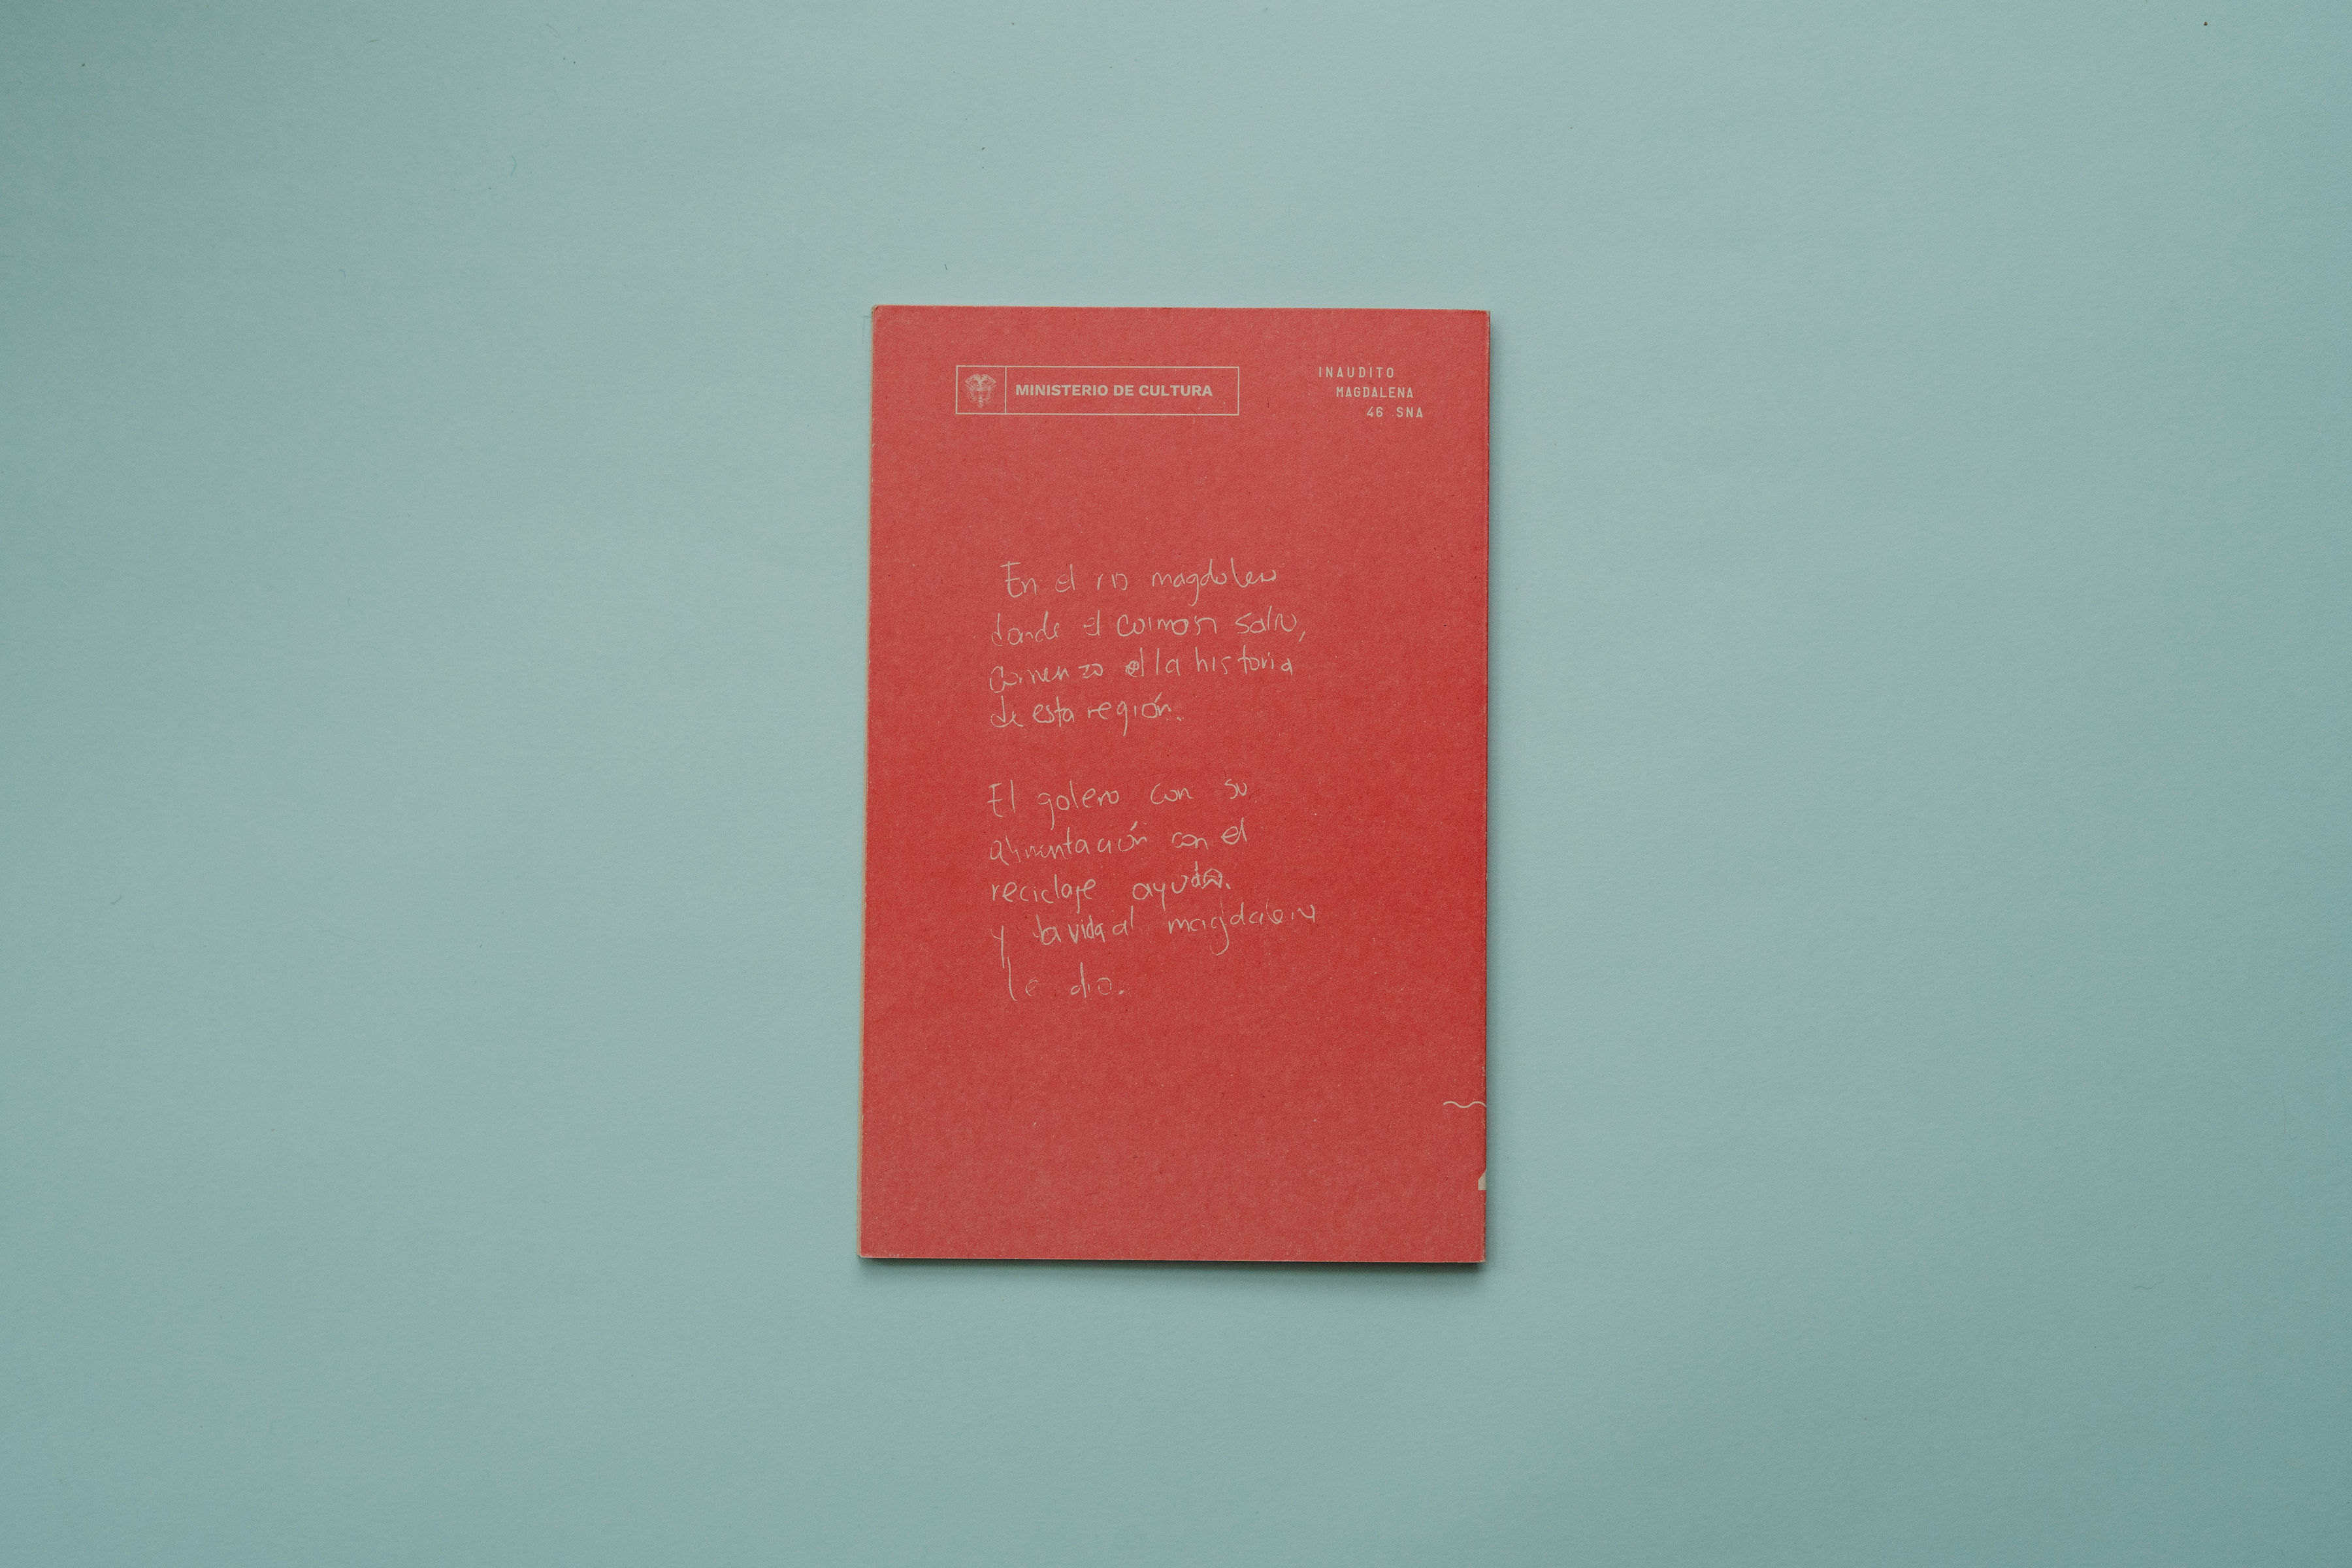 MINISTERIO DE CULTURA
INAUDITO
MAGDALENA
46 SNA
En el rio magdalena
donde el caiman salio,
comenzo el la historia
de esta región.
El golero con su
alimentación con el
reciclaje ayuda.
y la vida al magdalena
le dio.